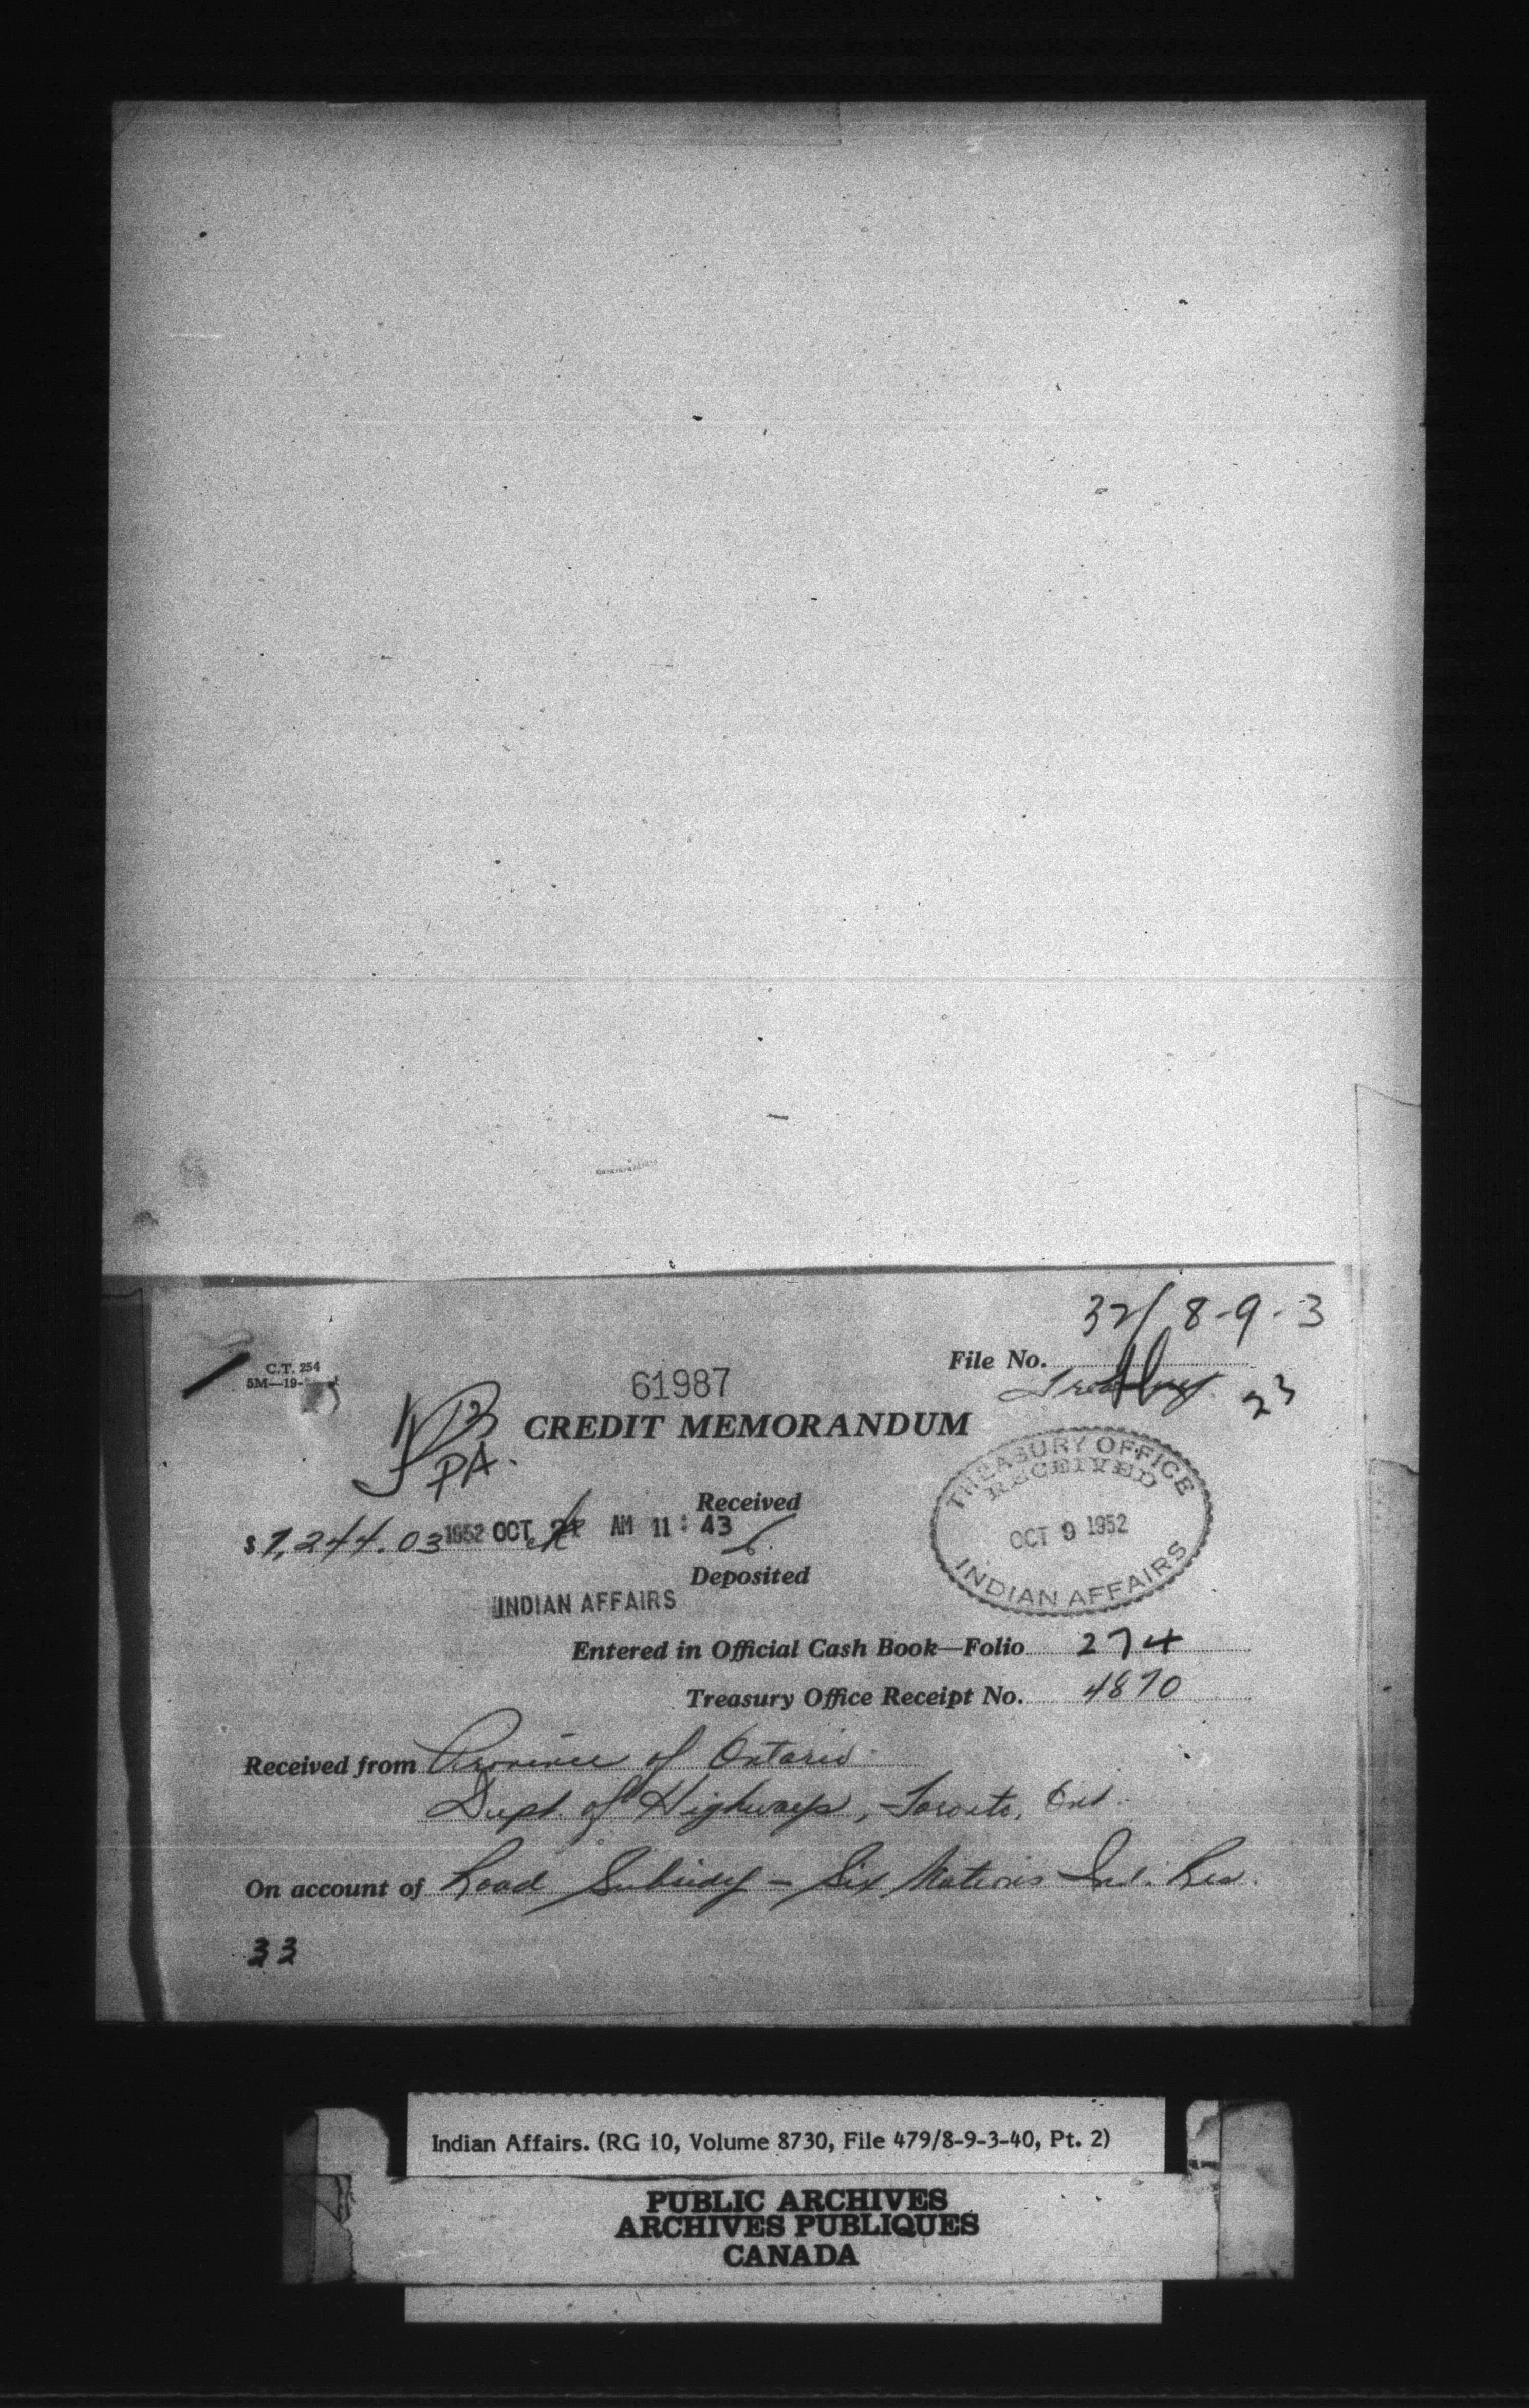 32/8-9-3
C.T. 254
5M—19-
61987
File No.
Treasury
23
CREDIT MEMORANDUM
PA.
TREASURY OFFICE
RECEIVED
OCT 9 1952
INDIAN AFFAIRS
Received
$ 7,244.03 1952 OCT 21 AM 11:43
Deposited
INDIAN AFFAIRS
Entered in Official Cash Book—Folio 274
Treasury Office Receipt No. 4870
Received from Province of Ontario
Dept. of Highways, Toronto, Ont.
On account of Road Subsidy – Six Nations Ind. Res.
33
Indian Affairs. (RG 10, Volume 8730, File 479/8-9-3-40, Pt. 2)
PUBLIC ARCHIVES
ARCHIVES PUBLIQUES
CANADA